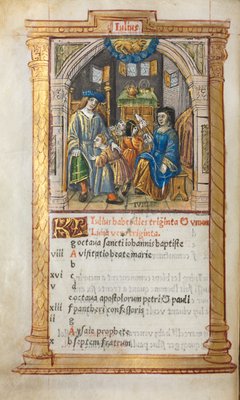 Iulius
IVPITER
KL Iulius habet dies triginta & vnum
Luna vero triginta.
g octaua sancti iohannis baptiste
viii A visitatio beate marie
b
xvi c
v d
e octaua apostolorum petri & pauli
xiii f pantheni confessoris
ii g
A ysaie prophete
x b septem fratrum